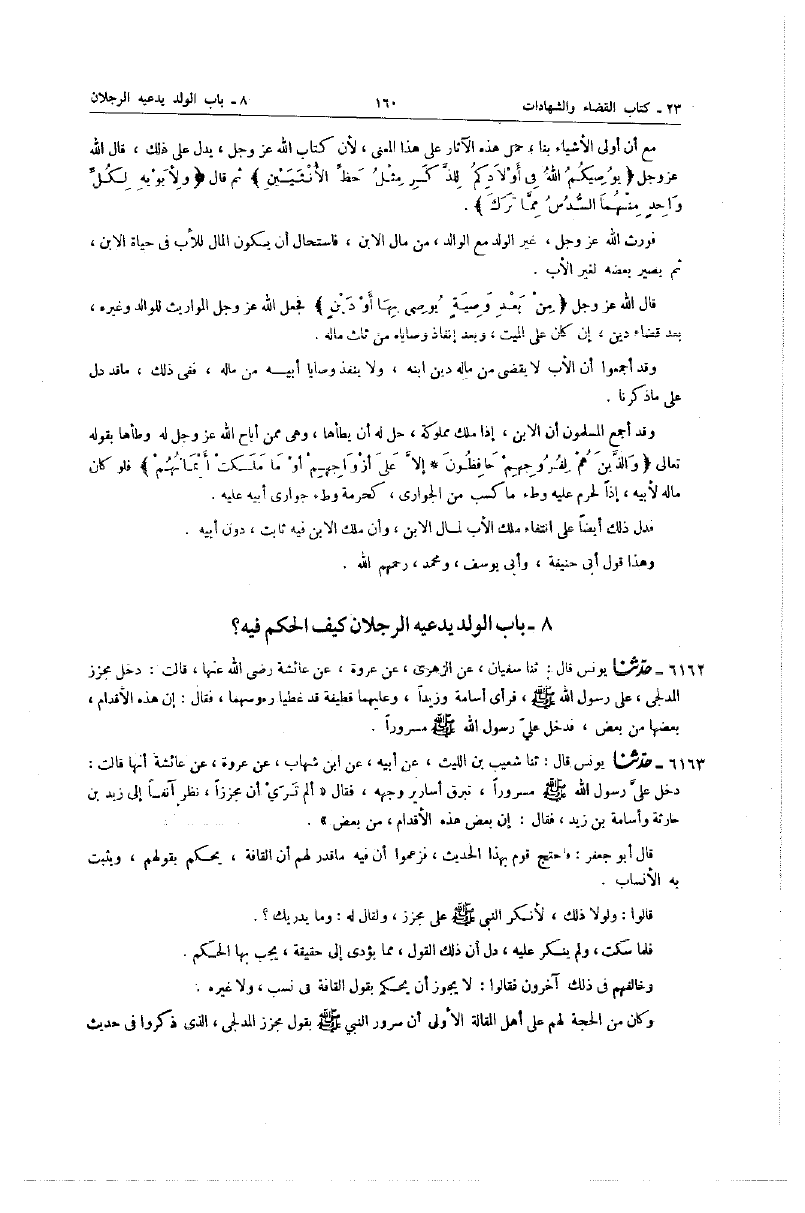 ٢٣ ـ كتاب القضاء والشهادات ١٦٠ ٨ ـ باب الولد يدعيه الرجلان
مع أن أولى الأشياء بنا ، حمل هذه الآثار على هذا المعنى ، لأن كتاب الله عز وجل ، يدل على ذلك ، قال الله
عز وجل ﴿ يُوصِيكُمُ اللهُ فِى أَوْلَادِكُمْ لِلذَّكَرِ مِثْلُ حَظِّ الأُنْثَيَيْنِ ﴾ ثم قال ﴿ وَلِأَبَوَيْهِ لِكُلِّ
وَاحِدٍ مِنْهُمَا السُّدُسُ مِمَّا تَرَكَ ﴾ .
فورث الله عز وجل ، غير الولد مع الوالد ، من مال الابن ، فاستحال أن يكون المال للأب فى حياة الابن ،
ثم يصير بعضه لغير الأب .
قال الله عز وجل ﴿ مِنْ بَعْدِ وَصِيَّةٍ يُوصِى بِهَا أَوْ دَيْنٍ ﴾ فجعل الله عز وجل المواريث للوالد وغيره ،
بعد قضاء دين ، إن كان على الميت ، وبعد إنفاذ وصاياه من ثلث ماله .
وقد أجمعوا أن الأب لا يقضى من ماله دين ابنه ، ولا ينفذ وصايا أبيـــه من ماله ، ففى ذلك ، ماقد دل
على ماذكرنا .
وقد أجمع المسلمون أن الابن ، إذا ملك مملوكة ، حل له أن يطأها ، وهى ممن أباح الله عز وجل له وطأها بقوله
تعالى ﴿ وَالَّذِينَ هُمْ لِفُرُوجِهِمْ حَافِظُونَ * إِلاَّ عَلَى أَزْوَاجِهِمْ أَوْ مَا مَلَكَتْ أَيْمَانُهُمْ ﴾ فلو كان
ماله لأبيه ، إذاً لحرم عليه وطء ماكسب من الجوارى ، كحرمة وطء جوارى أبيه عليه .
فدل ذلك أيضاً على انتفاء ملك الأب لمـال الابن ، وأن ملك الابن فيه ثابت ، دون أبيه .
وهذا قول أبى حنيفة ، وأبى يوسف ، ومحمد ، رحمهم الله .
٨ ـ باب الولد يدعيه الرجلان كيف الحكم فيه؟
٦١٦٢ ـ حدثنا يونس قال : ثنا سفيان ، عن الزهرى ، عن عروة ، عن عائشة رضى الله عنها ، قالت : دخل مجزز
المدلجى ، على رسول الله ﷺ ، فرأى أسامة وزيداً ، وعليهما قطيفة قد غطيا رءوسهما ، فقال : إن هذه الأقدام ،
بعضها من بعض ، فدخل علىّ رسول الله ﷺ مسروراً .
٦١٦٣ ـ حدثنا يونس قال : ثنا شعيب بن الليث ، عن أبيه ، عن ابن شهاب ، عن عروة ، عن عائشة أنها قالت :
دخل علىَّ رسول الله ﷺ مسروراً ، تبرق أسارير وجهه ، فقال « ألم تَرَىْ أن مجززاً ، نظر آنفـاً إلى زيد بن
حارثة وأسامة بن زيد ، فقال : إن بعض هذه الأقدام ، من بعض » .
قال أبو جعفر : فاحتج قوم بهذا الحديث ، فزعموا أن فيه ماقدر لهم أن القافة ، يحكم بقولهم ، ويثبت
به الأنساب .
قالوا : ولولا ذلك ، لأنكر النبى ﷺ على مجزز ، ولقال له : وما يدريك ؟ .
فلما سكت ، ولم ينكر عليه ، دل أن ذلك القول ، مما يؤدى إلى حقيقة ، يجب بها الحكم .
وخالفهم فى ذلك آخرون فقالوا : لا يجوز أن يحكم بقول القافة فى نسب ، ولا غيره .
وكان من الحجة لهم على أهل المقالة الأولى أن سرور النبي ﷺ بقول مجزز المدلجى ، الذى ذكروا فى حديث